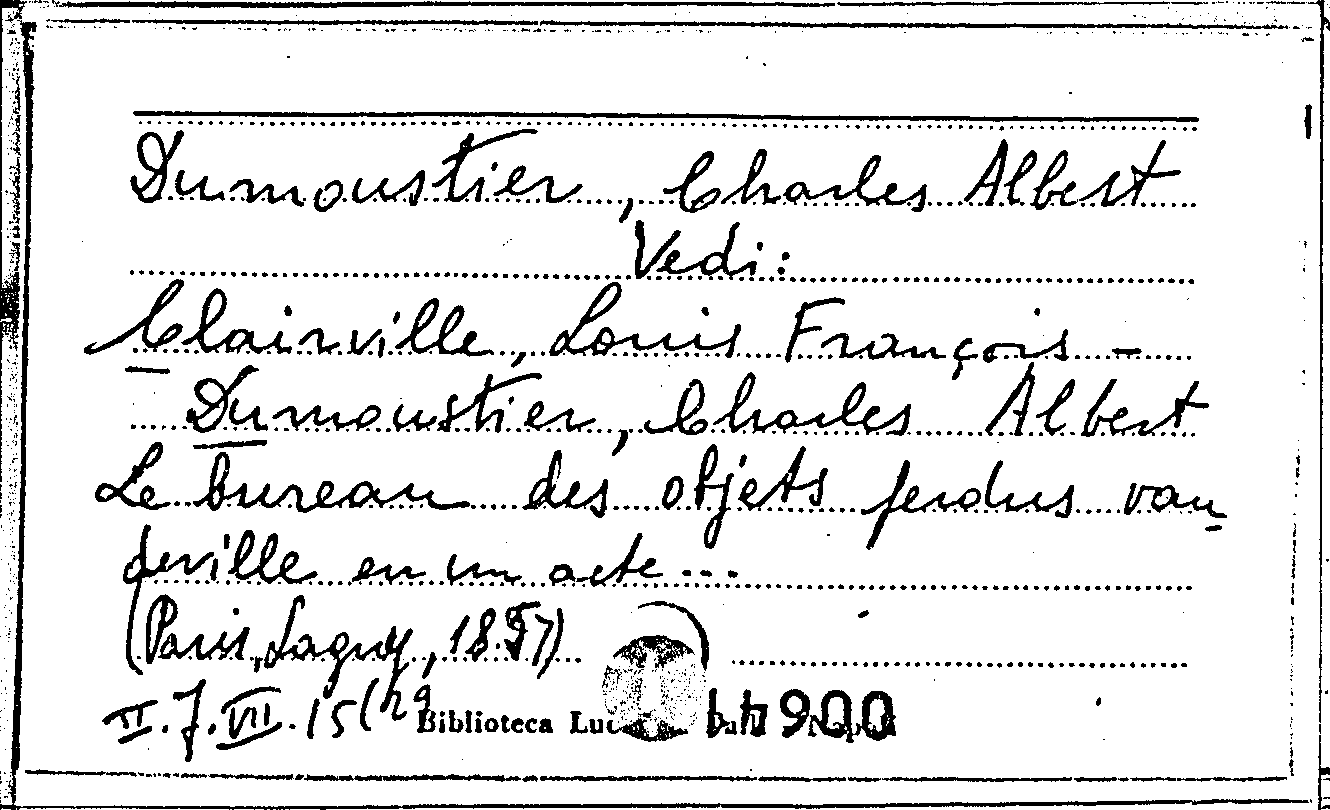 Dumoustier, Charles Albert
Vedi:
Clairville, Louis François -
Dumoustier, Charles Albert
Le bureau des objets perdus vau-
deville en un acte...
(Paris, Lagny, 1857)
II.7.VII.15(
Biblioteca